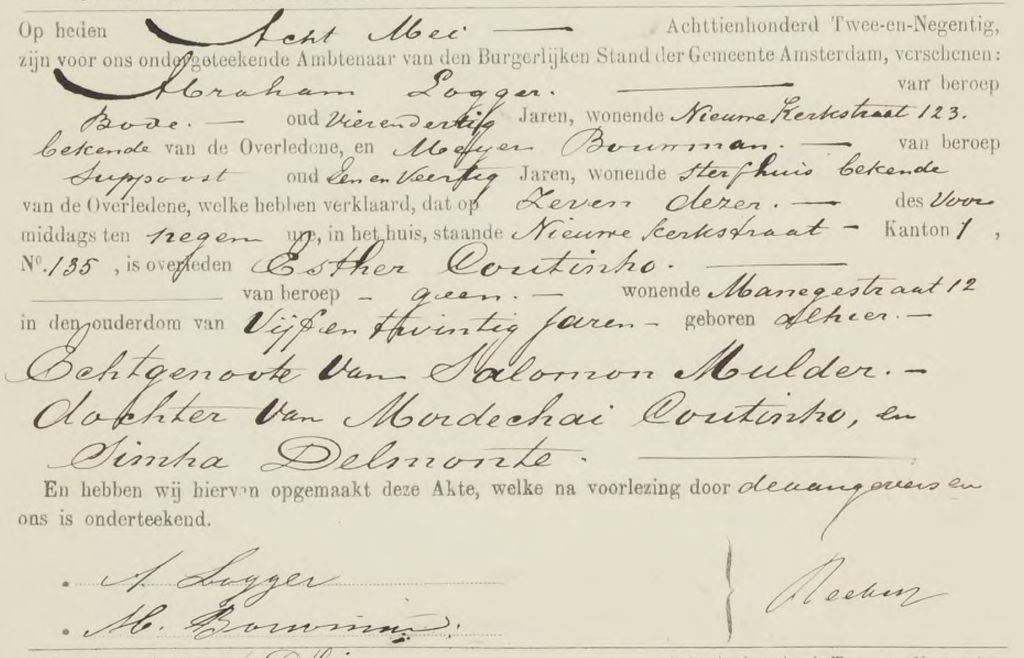 Op heden Acht Mei — Achttienhonderd Twee-en-Negentig,
zijn voor ons ondergeteekende Ambtenaar van den Burgerlijken Stand der Gemeente Amsterdam, verschenen:
Abraham Logger. — van beroep
Bode. — oud Vierendertig Jaren, wonende Nieuwe Kerkstraat 123.
bekende van de Overledene, en Meyer Bouwman. — van beroep
Suppoost oud Een en Veertig Jaren, wonende Sterfhuis bekende
van de Overledene, welke hebben verklaard, dat op Zeven dezer. — des Voor
middags ten negen ure, in het huis, staande Nieuwe Kerkstraat - Kanton 1,
No. 135, is overleden Esther Coutinho. —
— van beroep - geen. — wonende Manegestraat 12
in den ouderdom van Vijf en twintig jaren - geboren alhier. —
Echtgenoote van Salomon Mulder. —
dochter van Mordechai Coutinho, en
Simha Delmonte. —
En hebben wij hiervan opgemaakt deze Akte, welke na voorlezing door de aangevers en
ons is onderteekend.
A. Logger
M. Bouwman